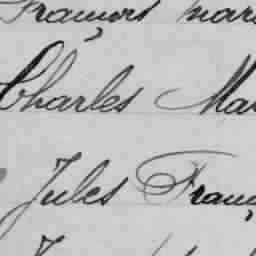 François mar
Charles Mar
Jules Franç